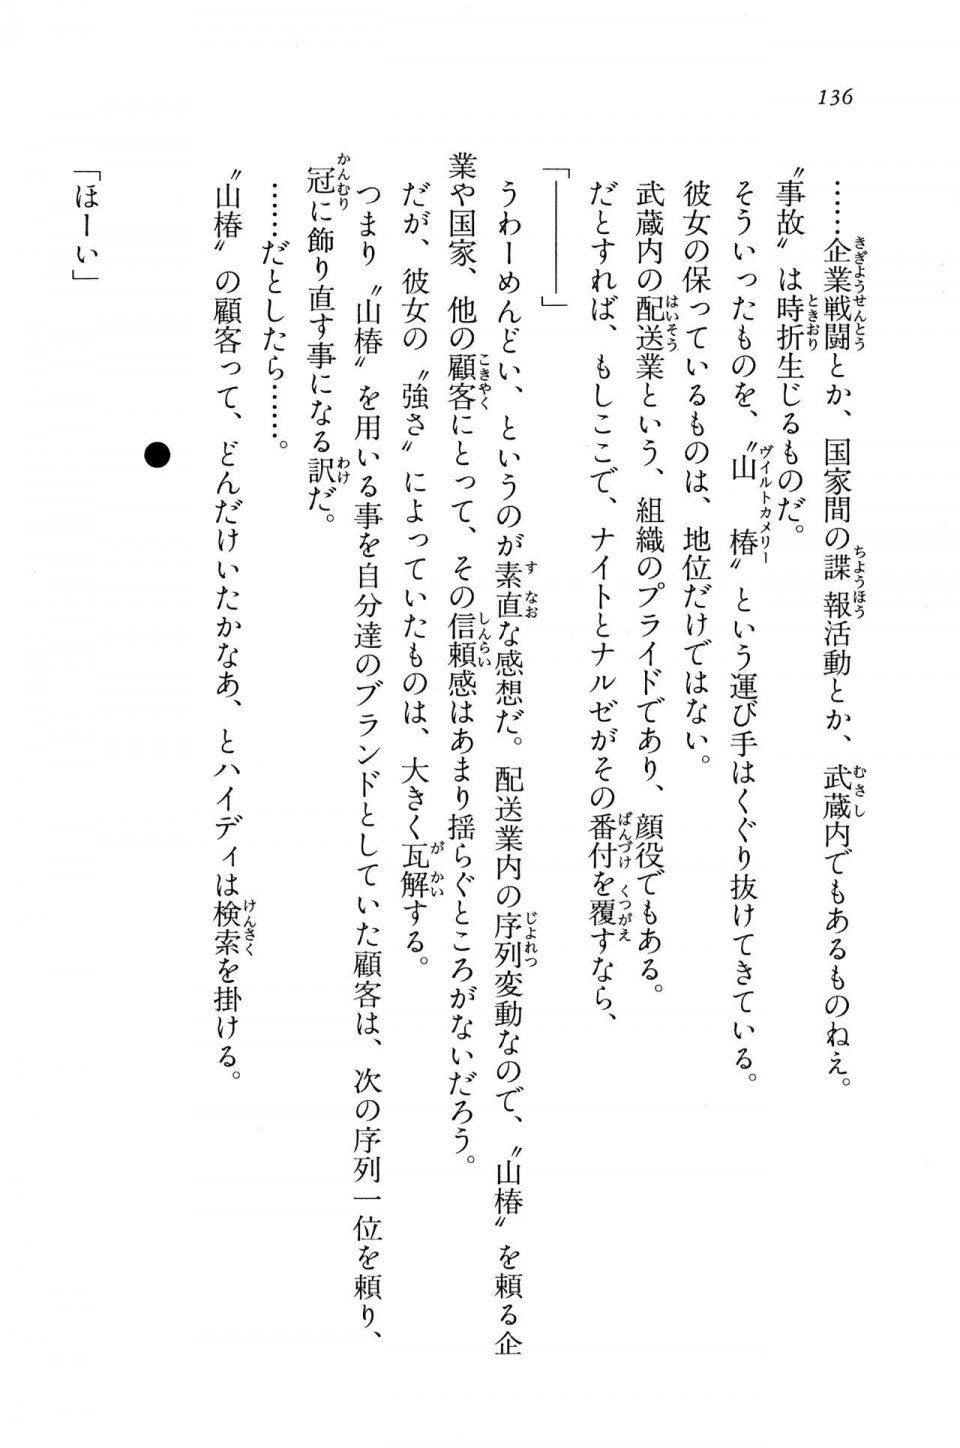 136
……企業戦闘とか、国家間の諜報活動とか、武蔵内でもあるものねえ。
〝事故〟は時折生じるものだ。
そういったものを、〝山椿〟という運び手はくぐり抜けてきている。
彼女の保っているものは、地位だけではない。
武蔵内の配送業という、組織のプライドであり、顔役でもある。
だとすれば、もしここで、ナイトとナルゼがその番付を覆すなら、
「―――」
うわーめんどい、というのが素直な感想だ。配送業内の序列変動なので、〝山椿〟を頼る企
業や国家、他の顧客にとって、その信頼感はあまり揺らぐところがないだろう。
だが、彼女の〝強さ〟によっていたものは、大きく瓦解する。
つまり〝山椿〟を用いる事を自分達のブランドとしていた顧客は、次の序列一位を頼り、
冠に飾り直す事になる訳だ。
……だとしたら……。
〝山椿〟の顧客って、どんだけいたかなあ、とハイディは検索を掛ける。
●
「ほーい」